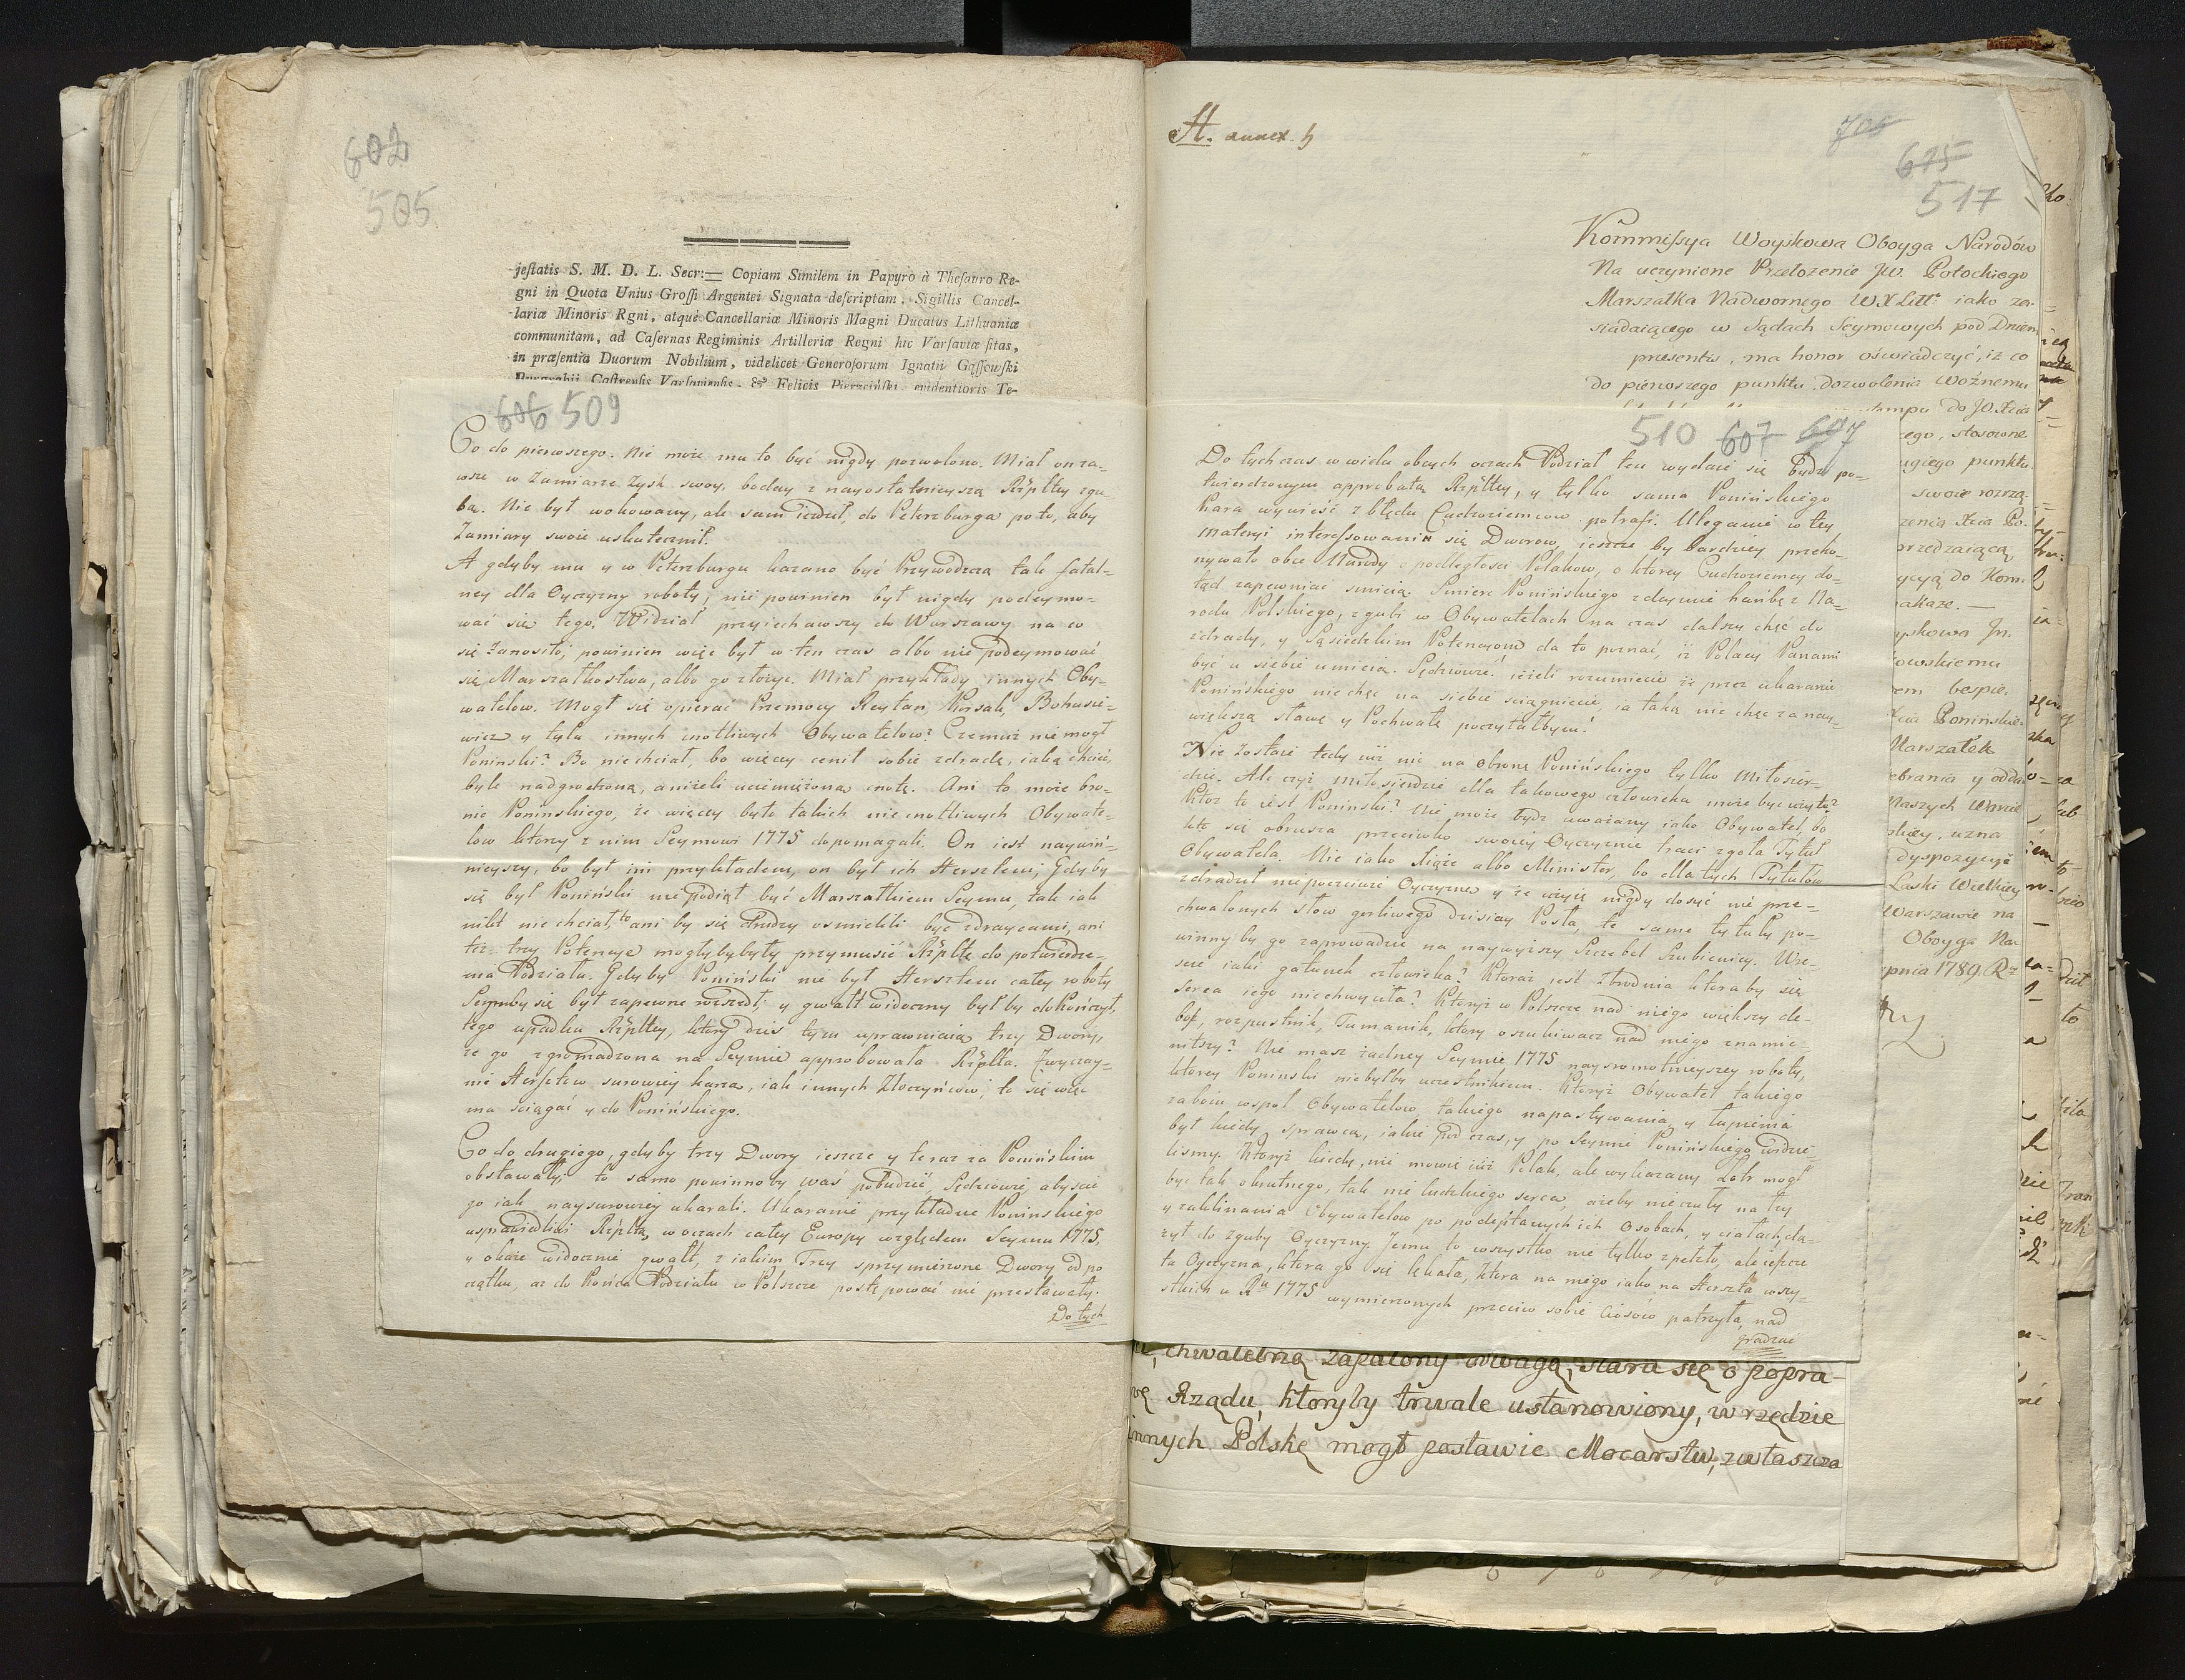 602
505
jestatis S. M. D. L. Secr:= Copiam Similem in Papyro à Thesauro Re-
gni in Quota Unius Grossi Argentei Signata descriptam, Sigillis Cancel-
lariæ Minoris Rgni, atque Cancellariæ Minoris Magni Ducatus Lithuaniæ
communitam, ad Casernas Regiminis Artilleriæ Regni hic Varsaviæ sitas,
in præsentia Duorum Nobilium, videlicet Generosorum Ignatii Gąssowski
Burgrabii Castrensis Varsaviensis, & Felicis Pierzciński evidentioris Te-
606 509
Co do pierwszego. Nie może mu to być nigdy pozwolono. Miał on za-
wsze w Zamiarze Zysk swoy, boday z nayostatnieyszą Rzpltey zgu-
bą. Nie był wokowany, ale sam iezdził, do Petersburga po to, aby
Zamiary swoie uskutecznił.
A gdyby mu y w Petersburgu kazano być Przywodzcą tak fatal-
ney dla Oyczyzny roboty, nie powinien był nigdy podeymo-
wać się tego. Widział przyiechawszy do Warszawy na co
się Zanosiło; powinien więc był w ten czas albo nie podeymować
się Marszałkostwa, albo go złożyć. Miał przykłady innych Oby-
watelow. Mogł się opierać Przemocy Reytan, Korsak, Bohusie-
wicz y tylu innych cnotliwych Obywatelow? Czemuż nie mogł
Poninski? Bo nie chciał, bo więcey cenił sobie zdradę, iaką chcieć,
byle nadgrodzoną, aniżeli uciemiężoną cnotę. Ani to może bro-
nić Ponińskiego, że więcey było takich nie cnotliwych Obywate-
low ktorzy z nim Seymowi 1775 dopomagali. On iest naywin-
nieyszy, bo był im przykładem, on był ich Hersztem; Gdyby
się był Poniński nie podiął być Marszałkiem Seymu, tak iak
nikt nie chciał, to ani by się Drudzy osmielili być zdraycami, ani
też trzy Potencye mogłybybyły przymusić Rzpltę do potwierdze-
nia Podziału. Gdyby Poniński nie był Hersztem całey roboty
Seymby się był zapewne rozszedł; y gwałt widoczny był by dokończył,
tego upadku Rzpltey, ktory dzis tym uprawniaią trzy Dwory,
że go zgromadzona na Seymie approbowała Rzplta. Zwyczay-
nie Hersztow surowiey karzą, iak innych Złoczyńcow; to się więc
ma sciągać y do Ponińskiego.
Co do drugiego, gdyby trzy Dwory ieszcze y teraz za Ponińskim
obstawały, to samo powinnoby was pobudzić, Sędziowie, abyscie
go iak naysurowiey ukarali. Ukaranie przykładne Ponińskiego
usprawiedliwi Rzpltę w oczach całey Europy względem Seymu 1775.
y okaże widocznie gwałt, z iakim Trzy sprzymierzone Dwory od po
czątku, aż do Końca Podziału w Polszcze postępować nie przestawały.
Do tych
H. annex. h
706
675
517
Kommissya Woyskowa Oboyga Narodów
Na uczynione Przełożenie JW. Potockiego
Marszałka Nadwornego WXLitt: iako za-
siadaiącego w Sądach Seymowych pod Dniem
presentis, ma honor oświadczyć, iż co
do pierwszego punktu dozwolenia Woźnemu
do JO. Xcia
510 607 697
Do tych czas w wielu obcych oczach Podział ten wydaie się bydz po-
twierdzonym approbatą Rzpltey, y tylko sama Ponińskiego
Kara wywieść z błędu Cudzoziemcow potrafi. Uleganie w tey
Materyi interessowania się Dworow, ieszcze by bardziey przeko-
nywało obce Narody o podległosci Polakow, o ktorey Cudzoziemcy do-
tąd zapewniać smieią. Smierć Ponińskiego zdeymie hańbę z Na-
rodu Polskiego, zgubi w Obywatelach na czas dalszy chęć do
zdrady, y Sąsiedzkim Potencyom da to poznać, iż Polacy Panami
być u siebie umieią. Sędziowie! ieżeli rozumiecie że przez ukaranie
Ponińskiego niechęć na siebie sciągniecie, ia taką nie chęć za nay-
większą sławę y Pochwałę poczytałbym!
Nie Zostaie tedy iuż nic na obronę Ponińskiego tylko Miłosier-
dzie. Ale czyż Miłosierdzie dla takowego człowieka może być użyte?
Ktoż to iest Poninski? Nie może bydz uważany iako Obywatel, bo
kto się obrusza przeciwko swoiey Oyczyznie traci zgoła Tytuł
Obywatela. Nie iako Xiąże albo Minister, bo dla tych Tytułow
zdradził niepoczciwie Oyczyznę y że użyię nigdy dosyć nie prze-
chwalonych słow gorliwego dzisiay Posła, te same tytuły po-
winny by go zaprowadzić na naywyższy Szczebel Szubienicy. We-
scie iaki gatunek człowieka? Ktoraż iest Zbrodnia ktoraby się
Serca iego nie chwyciła? Ktoryż w Polszcze nad niego większy de-
bosz, rozpustnik, Tumanik, ktory oszukiwacz nad niego znamie-
nitszy? Nie masz żadney Seymie 1775 naysromotnieyszey roboty,
ktorey Poninski niebyłby uczestnikiem. Ktoryż Obywatel takiego
zaboiu wspoł Obywatelow, takiego napastywania, y łupienia
był kiedy sprawcą, iakie pod czas, y po Seymie Ponińskiego widzie-
lismy. Ktoryż kiedy, nie mowię iuż Polak, ale wykazany Łotr mogł
być tak okrutnego, tak nie ludzkiego serca, ażeby nieczuły na łzy
y zaklinania Obywatelow po podeptanych ich Osobach, y ciałach dą-
żył do zguby Oyczyzny. Jemu to wszystko nie tylko zpełzło, ale ieszcze
ta Oyczyzna, ktora go się lękała, ktora na niego iako na Herszta wszy-
stkich w Ru 1775 wymierzonych przeciw sobie Ciosow patrzyła, nad
gradzai
ego, stosowne
ugiego punktu
swoie rozrzą-
zenia Xcia Po-
przedzaiącą
ycyą do Kom.
nakaze. —
yskowa Jn.
owskiemu
em bespie-
Xcia Ponińskie-
Marszałek
ebrania y odda
Naszych Warsz
skiey, uzna
dyspozycyie
Laski Wielkiey
Warszawie na
Oboyga Na-
pnia 1789 Rz
chwalebną zapalony uwagą, stara się o popra-
wę Rządu, ktoryby trwale ustanowiony, w rzędzie
innych Polskę mogł postawić Mocarstw, zwłaszcza